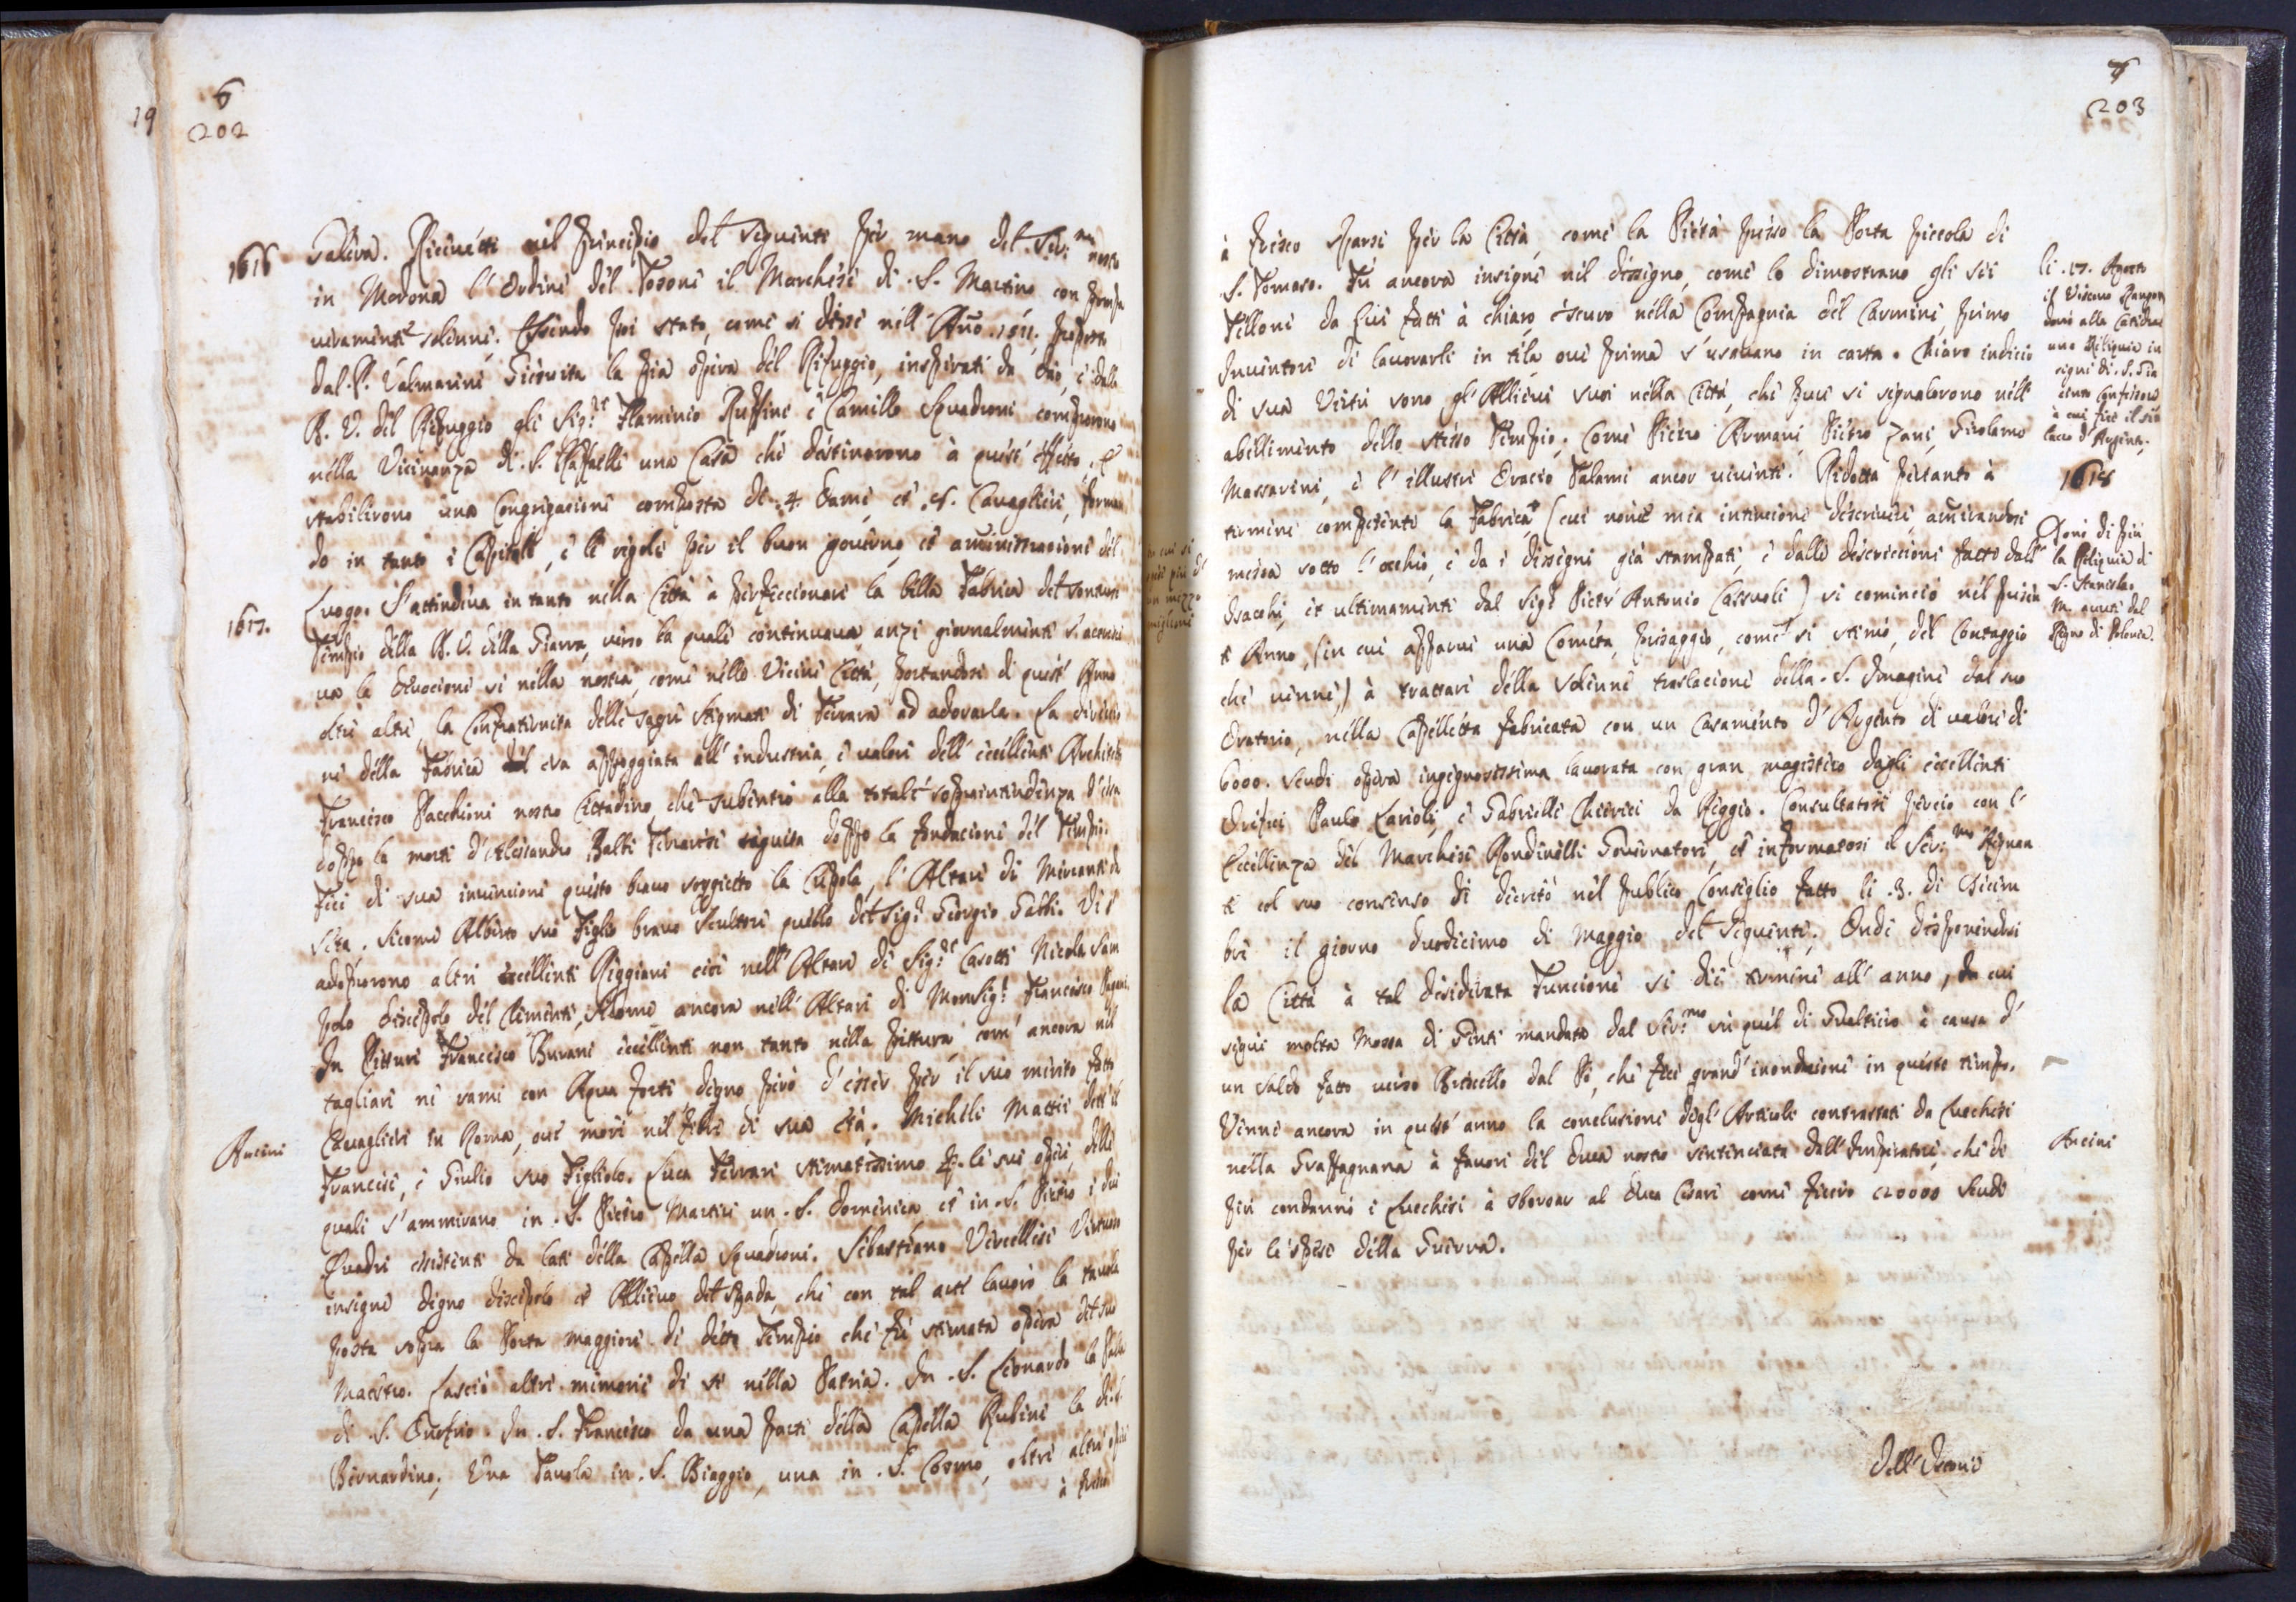 6
202
19
1616
Saliva. Ricevette nel principio del seguente per mano del Ser.mo nostro
in Modona l'Ordine del Tosone il Marchese di S. Martino con pompa
veramente solenne. Essendo poi stato, come si disse nell'Anno 1611. proposta
dal P. Valmarini Giesuita la pia opera del Rifuggio, inspirati da Dio, e dalla
B. V. del Refuggio gli Sig.ri Flaminio Ruffini e Camillo Squadroni comprorono
nella Vicinanza di S. Raffaelle una Casa che destinorono à quest'effetto. E
stabilirono una Congregatione composta di 4. Dame, et Cavaglieri, forman
do in tanto i Capitoli, e le regole per il buon governo, et amministratione del
Luogo. S'attendeva in tanto nella Città à perfeccionare la bella Fabrica del sontuoso
1617.
Tempio della B. V. della Giarra, verso la quale continuava anzi giornalmente s'accende
va la devocione si nella nostra, come nelle Vicine Città, portandosi di quest'Anno
oltre altre, la Confraternita delle Sagre Stigmate di Ferrara ad adorarla. La direttio
ne della Fabrica era appoggiata all'industria, e valore dell'eccellente Architetto
Francesco Pacchioni nostro Cittadino, che subentrò alla totale sopraintendenza d'essa
doppo la morte d'Alessandro Balbi Ferrarese seguita doppo la fondacione del Tempio.
Fece di sua invencione questo bravo soggietto la Cupola, l'Altare di Mercanti di
Seta. Sicome Alberto suo Figlio bravo Scultore quello del Sig.r Giorgio Gabbi. Vi s'
adoprorono altri eccellenti Reggiani cioè nell'Altare de Sig.ri Casotti Nicola Sam
polo discepolo del Clemente, come ancora nell'Altare di Monsig.r Francesco Pagani.
In Pitture Francesco Burani eccellente non tanto nella pittura, com'ancora nel
tagliare ne rami con Aqua forte degno però d'esser per il suo merito fatto
Cavagliere in Roma, ove morì nel fiore di sua età. Michele Mattei detto il
Azzini
Francese, e Giulio suo Figliolo. Luca Ferrari stimatissimo p. le sue opere, delle
quali s'ammirano in S. Pietro Martire un S. Domenico et in S. Pietro i due
Quadri esistenti da lati della Capella Squadroni. Sebastiano Vercellesi Virtuoso
insigne degno discepolo et Allievo del Spada, che con tal arte lavorò la tavola
posta sopra la Porta maggiore di detto Tempio che fù stimata opera del suo
Maestro. Lasciò altre memorie di se nella Patria. In S. Leonardo la Palla
di S. Onofrio. In S. Francesco da una parte della Capella Rubini la di S.
Bernardino; Una Tavola in S. Biaggio, una in S. Cosmo, oltre altre opere
à fresco
203
à fresco sparse per la Città, come la Pietà presso la Porta piccola di
S. Tomaso. Fù ancora insigne nel dissegno, come lo dimostrano gli sei
Telloni da Lui fatti à chiaro è scuro nella Compagnia del Carmine, primo
Inventore di lavorarli in tela ove prima s'usavano in carta. Chiaro indicio
di sua Virtù sono gl'Allievi suoi nella Città, che puoi si segnalorono nell'
abellimento dello stesso Tempio. Come Pietro Armani, Pietro Zani, Girolamo
Massarini, e l'illustre Oracio Talami ancor vivente. Ridotta pertanto à
termine competente la Fabrica (cui non è mia intencione descrivere, avendosi
messa sotto l'occhio, e da i dissegni già stampati, e dalle descriccioni fatte dall'
Isacchi, et ultimamente dal Sig.r Pietr'Antonio Cassuoli) si cominciò nel presen
te Anno, (in cui apparve una Cometa, presaggio, come si stimò, del Contaggio
che venne,) à trattare della solenne traslacione della S. Imagine dal suo
Oratorio, nella Capelletta fabricata con un Casamento d'Argento di valore di
6000. Scudi opera ingegnosissima lavorata con gran magistero dagli eccellenti
Orefici Paulo Larioli, e Gabrielle Chierici da Reggio. Consultatosi perciò con l'
Eccellenza del Marchese Rondinelli Governatore, et informatosi il Ser.mo Regnan
te col suo consenso si decretò nel publico Consiglio fatto li 3. di Decem
bre il giorno duodecimo di Maggio del seguente. Onde disponendosi
la Città à tal desiderata Funcione si diè termine all'anno, in cui
seguì molta Mossa di Genti mandate dal Ser.mo su quel di Gualtiero à causa d'
un saldo fatto verso Bresello dal Pò, che fece grand'inondacione in questo tempo.
Venne ancora in quest'anno la conclusione degl'Articoli contrastati da Luchesi
nella Graffagnana à favore del Duca nostro sentenciata dall'Imperatore, che di
più condannò i Lucchesi à sborsar al Duca Cesare come fecero 20000 Scudi
per le spese della Guerra.
li 17. Agosto
il Vescovo Rangon
donò alla Catedral
una Reliquia in
signe di S. Gia
cinto Confessore
à cui fece il si
lacro d'Argento.
1618
Donò di più
la Reliquia di
S. Stanislao
M. avuti dal
Regno di Polonia.
Azzini
Dell'Istorie